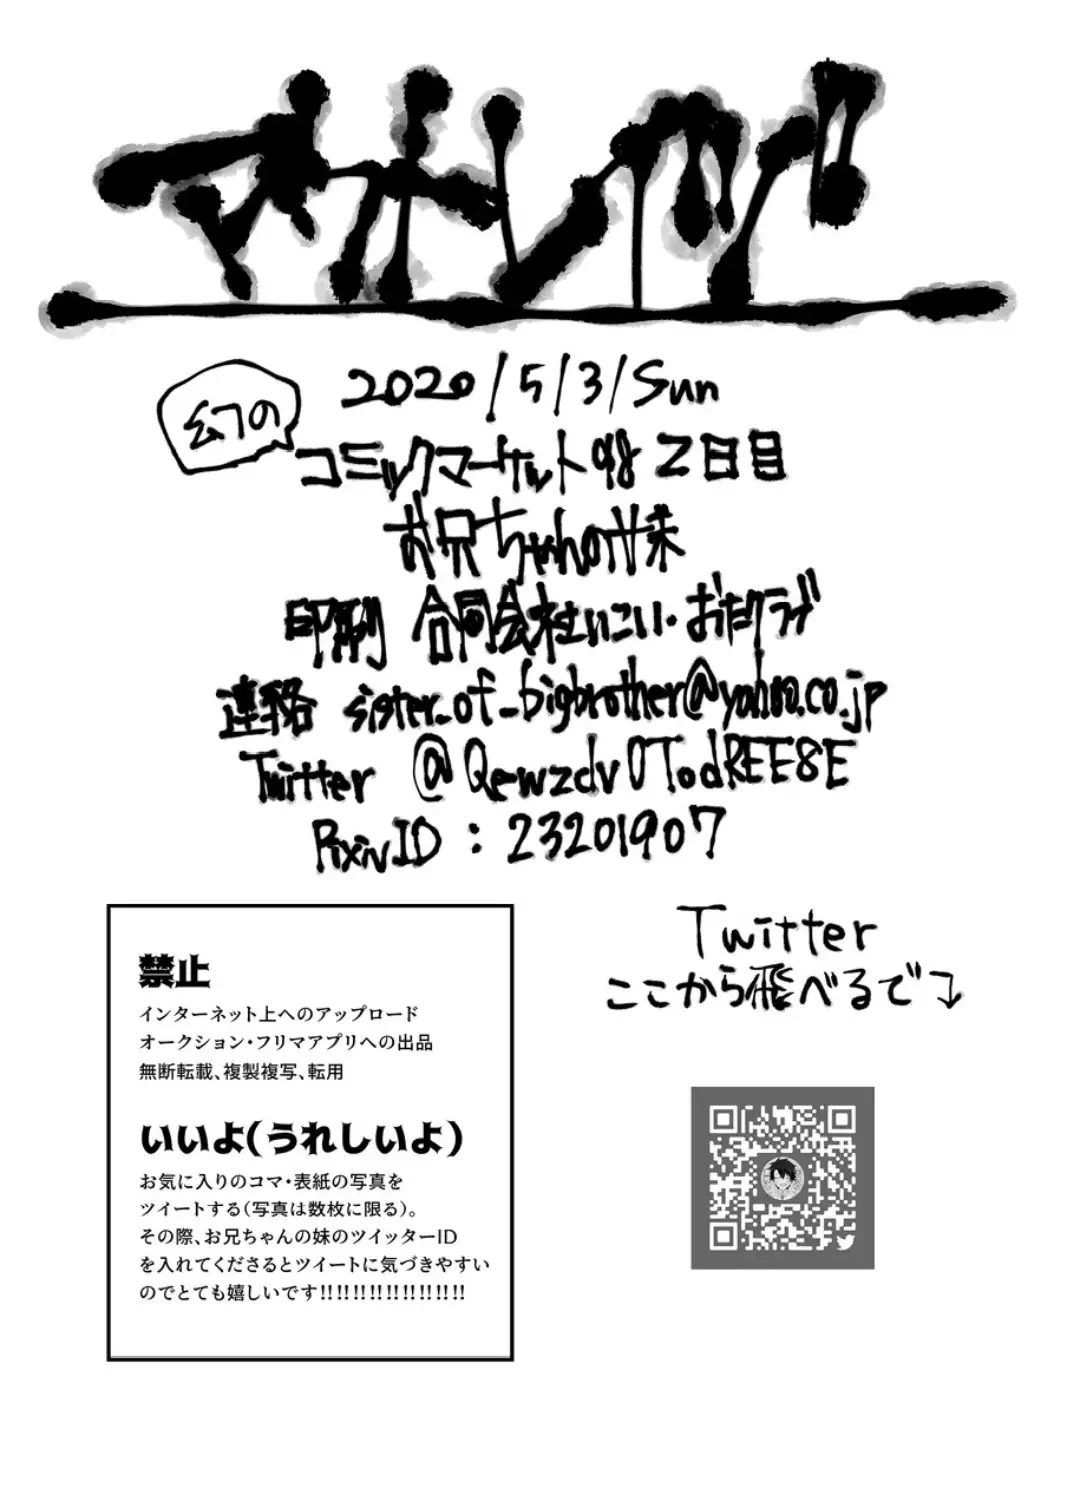 マオレツ
2020/5/3/Sun
幻の
コミックマーケット98 2日目
お兄ちゃんの妹
印刷 合同会社いこい・おたクラブ
連絡 sister_of_bigbrother@yahoo.co.jp
Twitter @Qewzdv0TodREE8E
PixivID:23201907
禁止
インターネット上へのアップロード
オークション・フリマアプリへの出品
無断転載、複製複写、転用
いいよ(うれしいよ)
お気に入りのコマ・表紙の写真を
ツイートする(写真は数枚に限る)。
その際、お兄ちゃんの妹のツイッターID
を入れてくださるとツイートに気づきやすい
のでとても嬉しいです!!!!!!!!!!!!!!!!!!
Twitter
ここから飛べるで